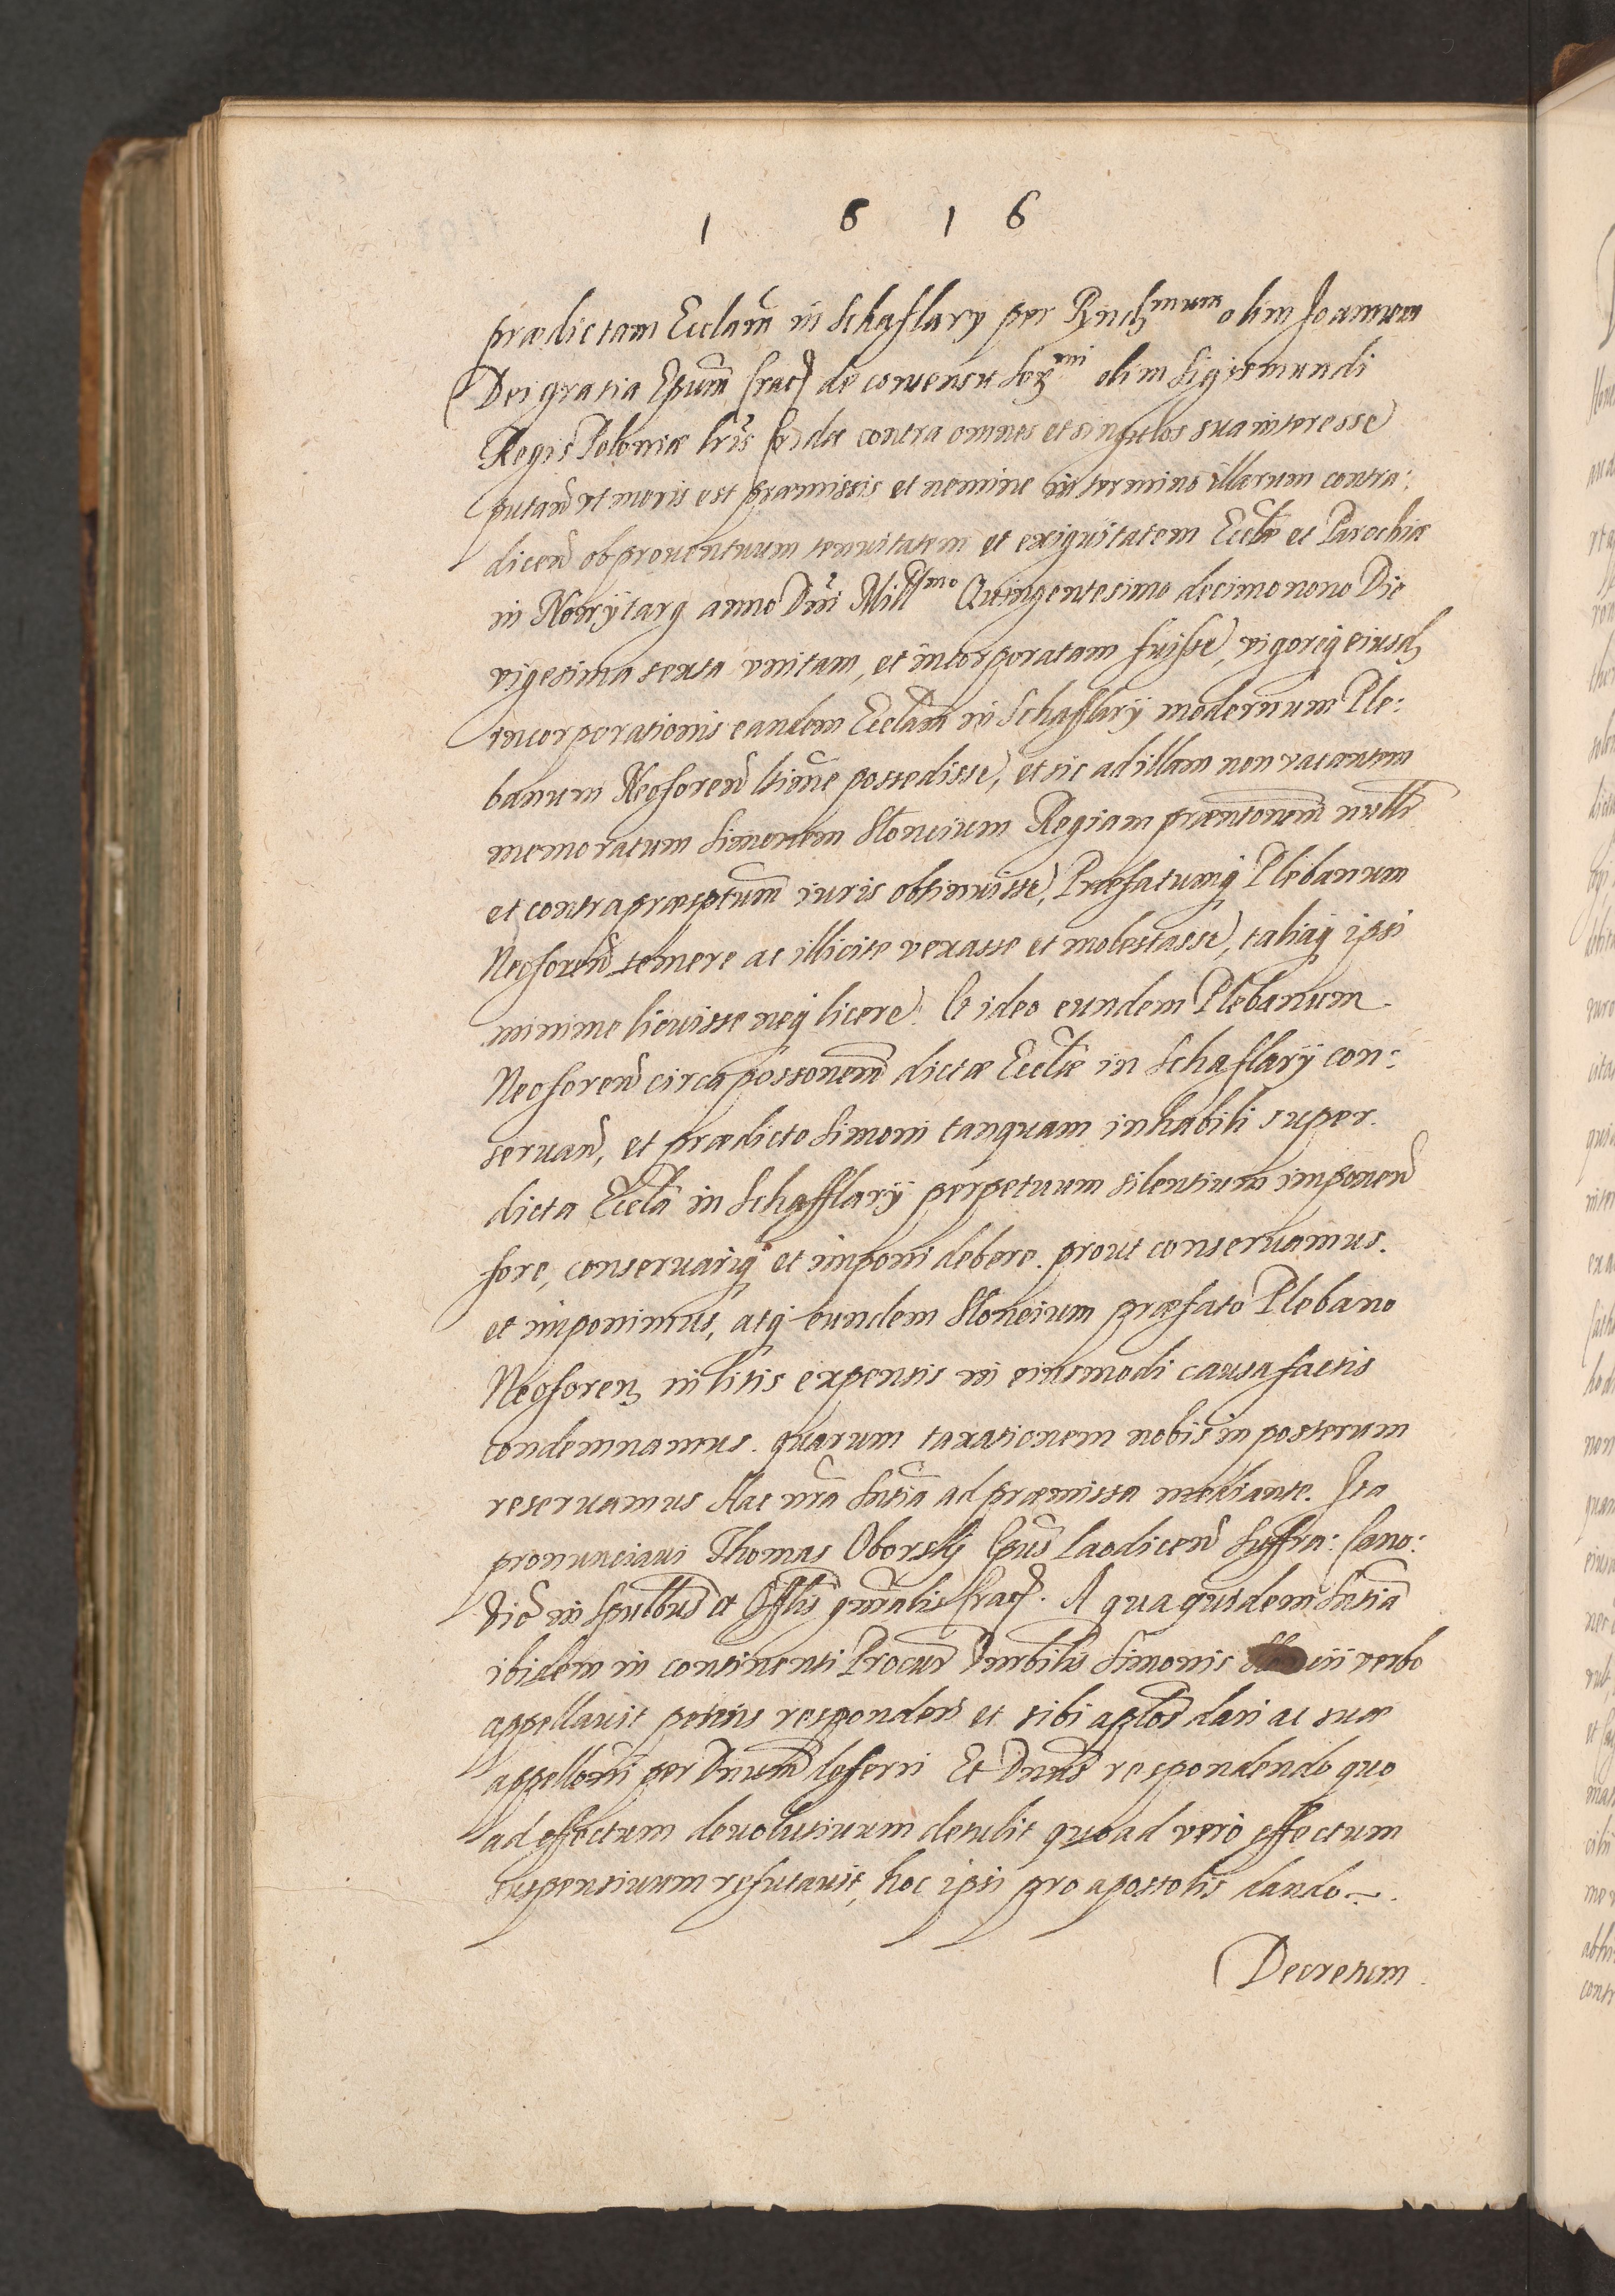 1 6 1 6
prædictam Ecclam̃ in Schaflary per Rṽndissmum olim Joannem
Dei gratia Epum̃ Crac̃ de consensu Sermi olim Sigismundi
Regis Poloniæ lr̃is contra omnes et singulos sua interesse
putañ ut moris est præmissis et nemine in termino illarum contra:
diceñ ob prouentuum tenuitatem et exiguitatem Eccłæ et Parochiæ
in Nowÿtarg anno Dñi Millmo Quingentesimo decimo nono Die
vigesima sexta vnitam, et incorporatam fuisse, vigoreq eiusd
incorporationis eandem Ecclam̃ in Schafflarÿ modernum Ple:
banum Neoforeñ ltime possedisse, et sic ad illam non vacantem
memoratum Simonem Sloncium Regiam præntonem̃ nulli
et contra præsptum̃ iuris obtinuisse, Præfatumq Plebanum
Neoforeñ temere ac illicite vexasse et molestasse, taliaq ipsi
minime licuisse neq licere. Et ideo eundem Plebanum
Neoforeñ circa possonem̃ dictæ Eccłæ in Schaflarÿ con:
seruañ, et prædicto Simoni tanquam inhabili super
dicta Eccła in Schafflarÿ perpetuum silentium imponeñ
fore, conseruariq et imponi debere. prout conseruamus.
et imponimus, atq eundem Sloncium præfato Plebano
Neoforeñ in litis expensis in eiusmodi causa factis
condemnamus. quarum taxationem nobis in posterum
reseruamus Hac nr̃a Sntia ad præmissa mediante. Ita
pronunciaui Thomas Oborskÿ Epus̃ Laodiceñ Suffra: Cano:
Vic̃ in Spũlbus et Offlis gnr̃alis Crac̃. A qua quidem Sntia
ibidem in continenti Procur̃ Vnrbilis Simonis verbo
appellauit petens respondeñ et sibi apłos dari ac suæ
appelloni per Dnum̃ deferri Et Dnus̃ respondendo quo
ad effectum deuolutiuum detulit quo ad vero effectum
suspensiuum refutauit, hoc ipsi pro apostolis dando.
Decretum